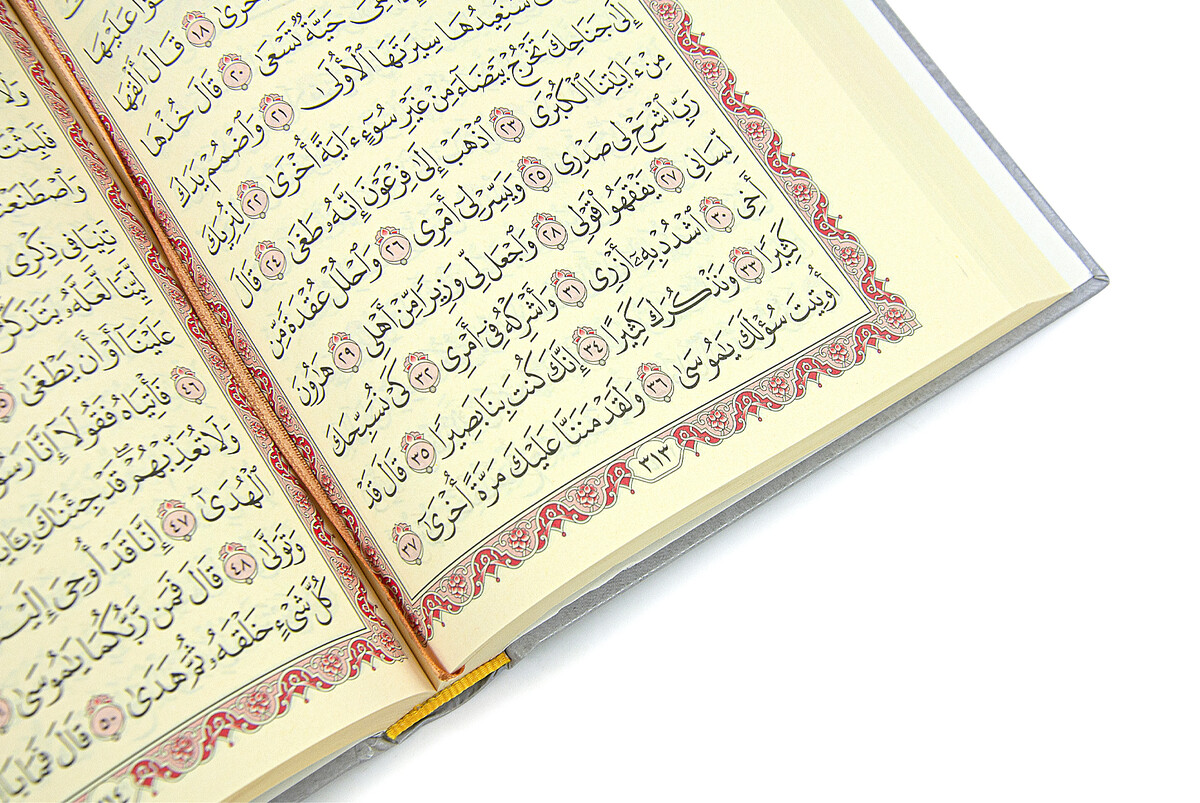 عَلَيْهَا
أُخْرَىٰ ١٨ قَالَ أَلْقِهَا
حَيَّةٌ تَسْعَىٰ ٢٠ قَالَ خُذْهَا
سَنُعِيدُهَا سِيرَتَهَا ٱلْأُولَىٰ ٢١ وَٱضْمُمْ يَدَكَ
إِلَىٰ جَنَاحِكَ تَخْرُجْ بَيْضَآءَ مِنْ غَيْرِ سُوٓءٍ ءَايَةً أُخْرَىٰ ٢٢ لِنُرِيَكَ
مِنْ ءَايَٰتِنَا ٱلْكُبْرَى ٢٣ ٱذْهَبْ إِلَىٰ فِرْعَوْنَ إِنَّهُۥ طَغَىٰ ٢٤ قَالَ
رَبِّ ٱشْرَحْ لِى صَدْرِى ٢٥ وَيَسِّرْ لِىٓ أَمْرِى ٢٦ وَٱحْلُلْ عُقْدَةً مِّن
لِّسَانِى ٢٧ يَفْقَهُوا۟ قَوْلِى ٢٨ وَٱجْعَل لِّى وَزِيرًا مِّنْ أَهْلِى ٢٩ هَٰرُونَ
أَخِى ٣٠ ٱشْدُدْ بِهِۦٓ أَزْرِى ٣١ وَأَشْرِكْهُ فِىٓ أَمْرِى ٣٢ كَىْ نُسَبِّحَكَ
كَثِيرًا ٣٣ وَنَذْكُرَكَ كَثِيرًا ٣٤ إِنَّكَ كُنتَ بِنَا بَصِيرًا ٣٥ قَالَ قَدْ
أُوتِيتَ سُؤْلَكَ يَٰمُوسَىٰ ٣٦ وَلَقَدْ مَنَنَّا عَلَيْكَ مَرَّةً أُخْرَىٰٓ ٣٧
٣١٣
تَنِيَا فِى ذِكْرِى
لَّيِّنًا لَّعَلَّهُۥ يَتَذَكَّرُ
عَلَيْنَآ أَوْ أَن يَطْغَىٰ
٤٦ فَأْتِيَاهُ فَقُولَآ إِنَّا
وَلَا تُعَذِّبْهُمْ قَدْ جِئْنَٰكَ
ٱلْهُدَىٰٓ ٤٧ إِنَّا قَدْ أُوحِىَ
وَتَوَلَّىٰ ٤٨ قَالَ فَمَن رَّبُّكُمَا يَٰمُوسَىٰ
كُلَّ شَىْءٍ خَلْقَهُۥ ثُمَّ هَدَىٰ ٥٠ قَالَ فَمَا